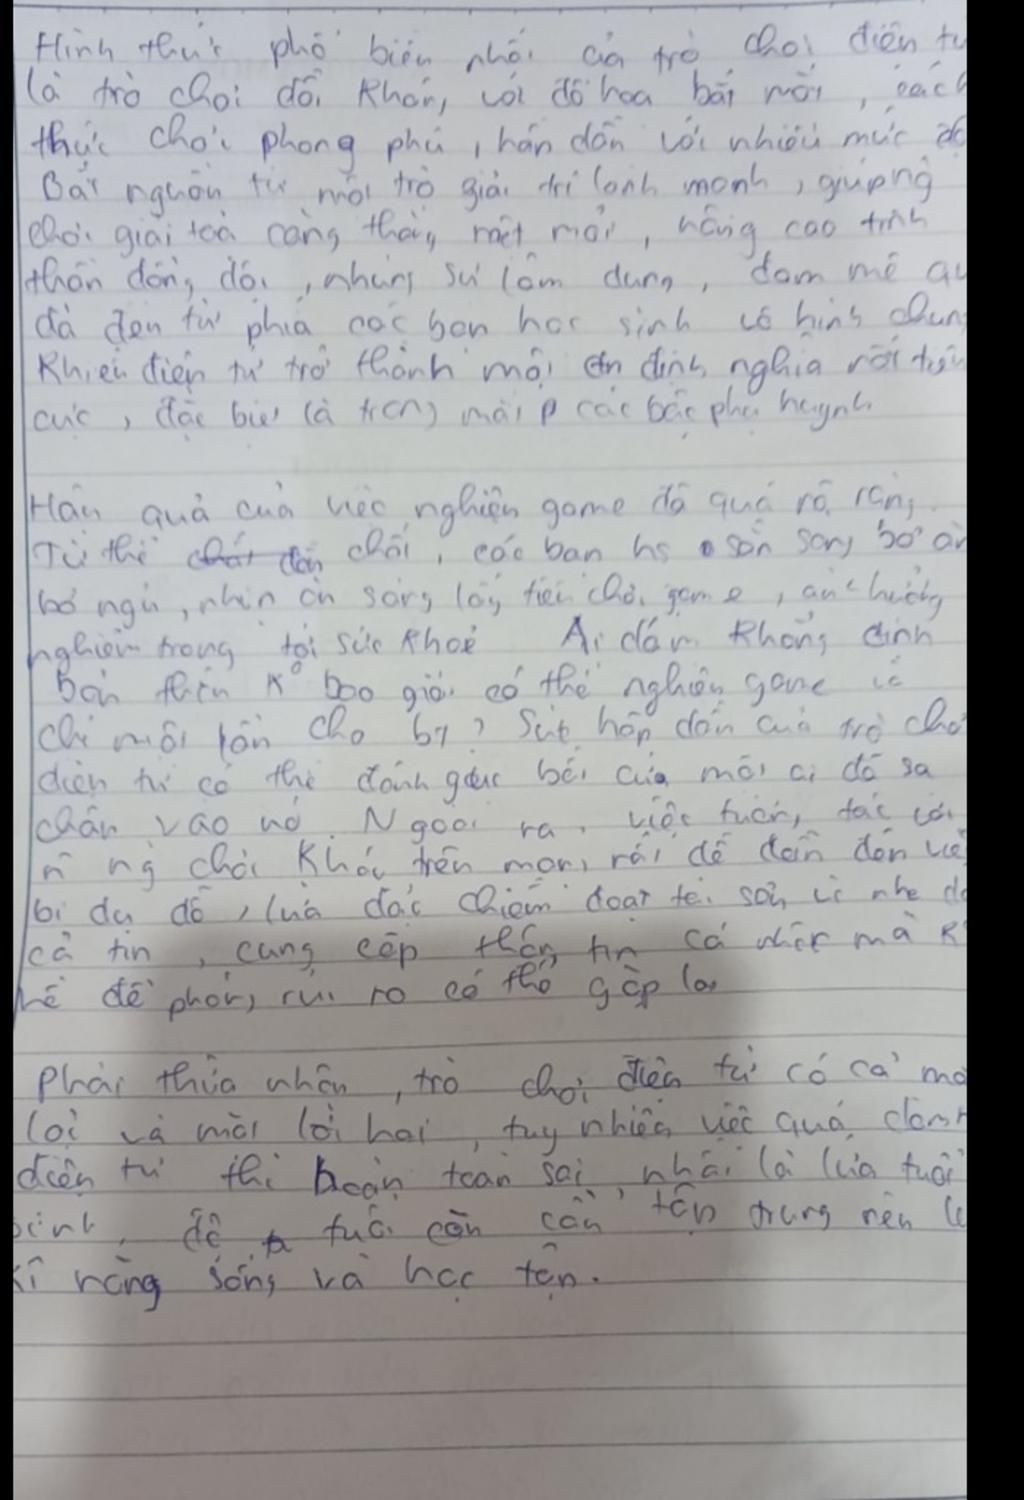 Hình thức phổ biến nhất của trò chơi điện tử
là trò chơi đối kháng, với đồ hoạ bắt mắt, cách
thức chơi phong phú, hấp dẫn với nhiều mức độ
Bắt nguồn từ một trò giải trí lành mạnh, giúp ng
chơi giải toả căng thẳng mệt mỏi, nâng cao tinh
thần đồng đội, nhưng sự lạm dụng, đam mê qu
đà đến từ phía các bạn học sinh vô hình chung
khiến điện tử trở thành một định nghĩa rất tiêu
cực, đặc biệt là trong mắt các bậc phụ huynh

Hậu quả của việc nghiện game đã quá rõ ràng.
Từ thể chất, các bạn hs sẵn sàng bỏ ăn
bỏ ngủ, nhịn ăn sáng lấy tiền chơi game, ảnh hưởng
nghiêm trọng tới sức khoẻ Ai dám khẳng định
bản thân k bao giờ có thể nghiện game
chỉ một lần cho Sức hấp dẫn của trò chơ
điện tử có thể đánh gục bất cứ một ai đã sa
chân vào nó. Ngoài ra, việc tương tác với
n ng chơi khác trên mạng rất dễ dẫn đến việ
bị dụ dỗ, lừa đảo chiếm đoạt tài sản vì nhẹ dạ
cả tin, cung cấp thông tin cá nhân mà k
hề đề phòng rủi ro có thể gặp lại

Phải thừa nhận, trò chơi điện tử có cả mặ
lợi và mặt lợi hại, tuy nhiên việc quá đam
điện tử thì hoàn toàn sai, nhất là lứa tuổi
sinh, độ tuổi còn cần tập trung rèn l
kĩ năng sống và học tập.